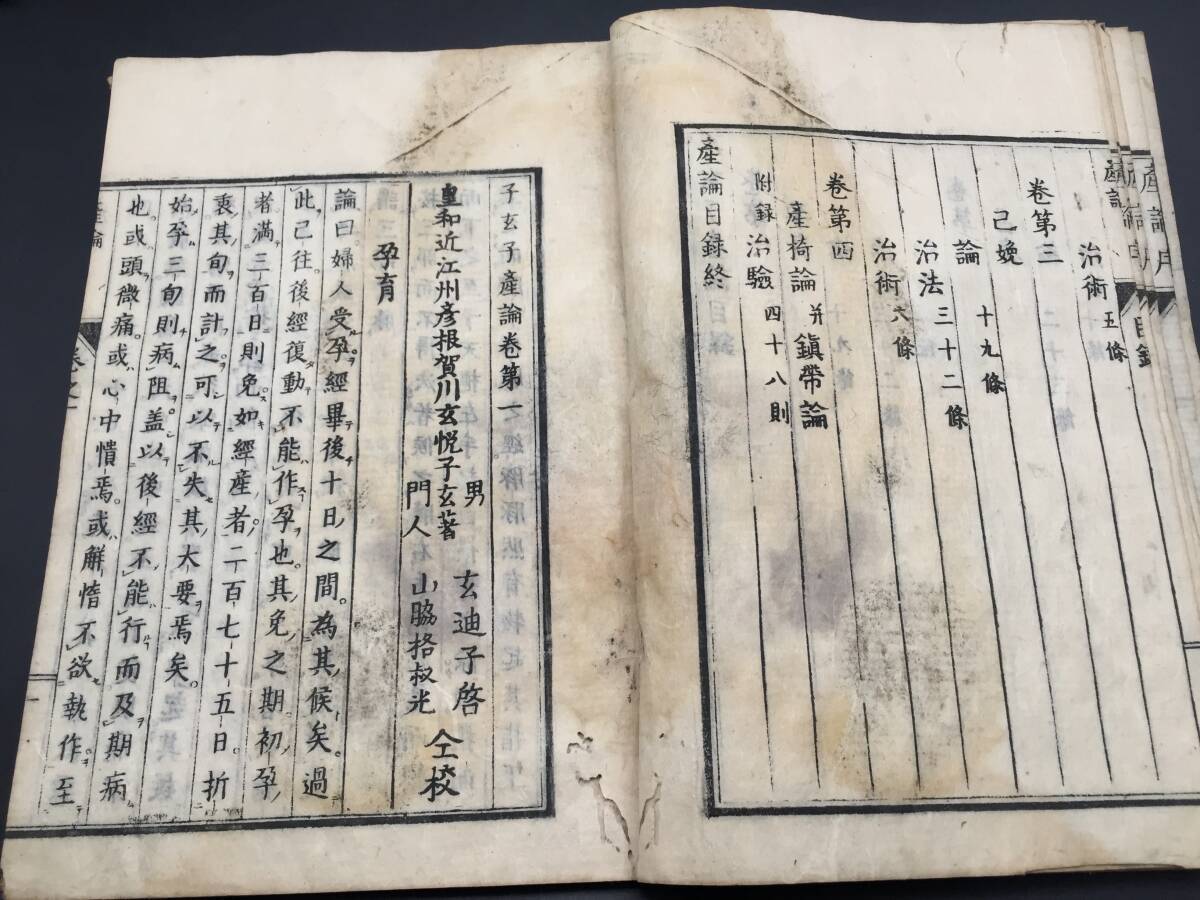 治術 五條
卷第三
已娩
論 十九條
治法 三十二條
治術 六條
卷第四
產椅論 并 鎮帶論
附録 治驗 四十八則
產論目録終
子玄子產論卷第一
皇和近江州彥根賀川玄悅子玄著
男 玄迪子啓
門人 山脇格叔光 仝校
孕育
論曰婦人受孕經畢後十日之間。為其候矣。過
此已往後經復動不能作孕也。其免之期初孕
者滿三百日則免。如經產者二百七十五日。折
衷其旬而計之可以不失其大要焉矣。
始孕三旬則病阻。盖以後經不能行而及期病
也。或頭微痛。或心中憒焉。或懈惰不欲執作。至